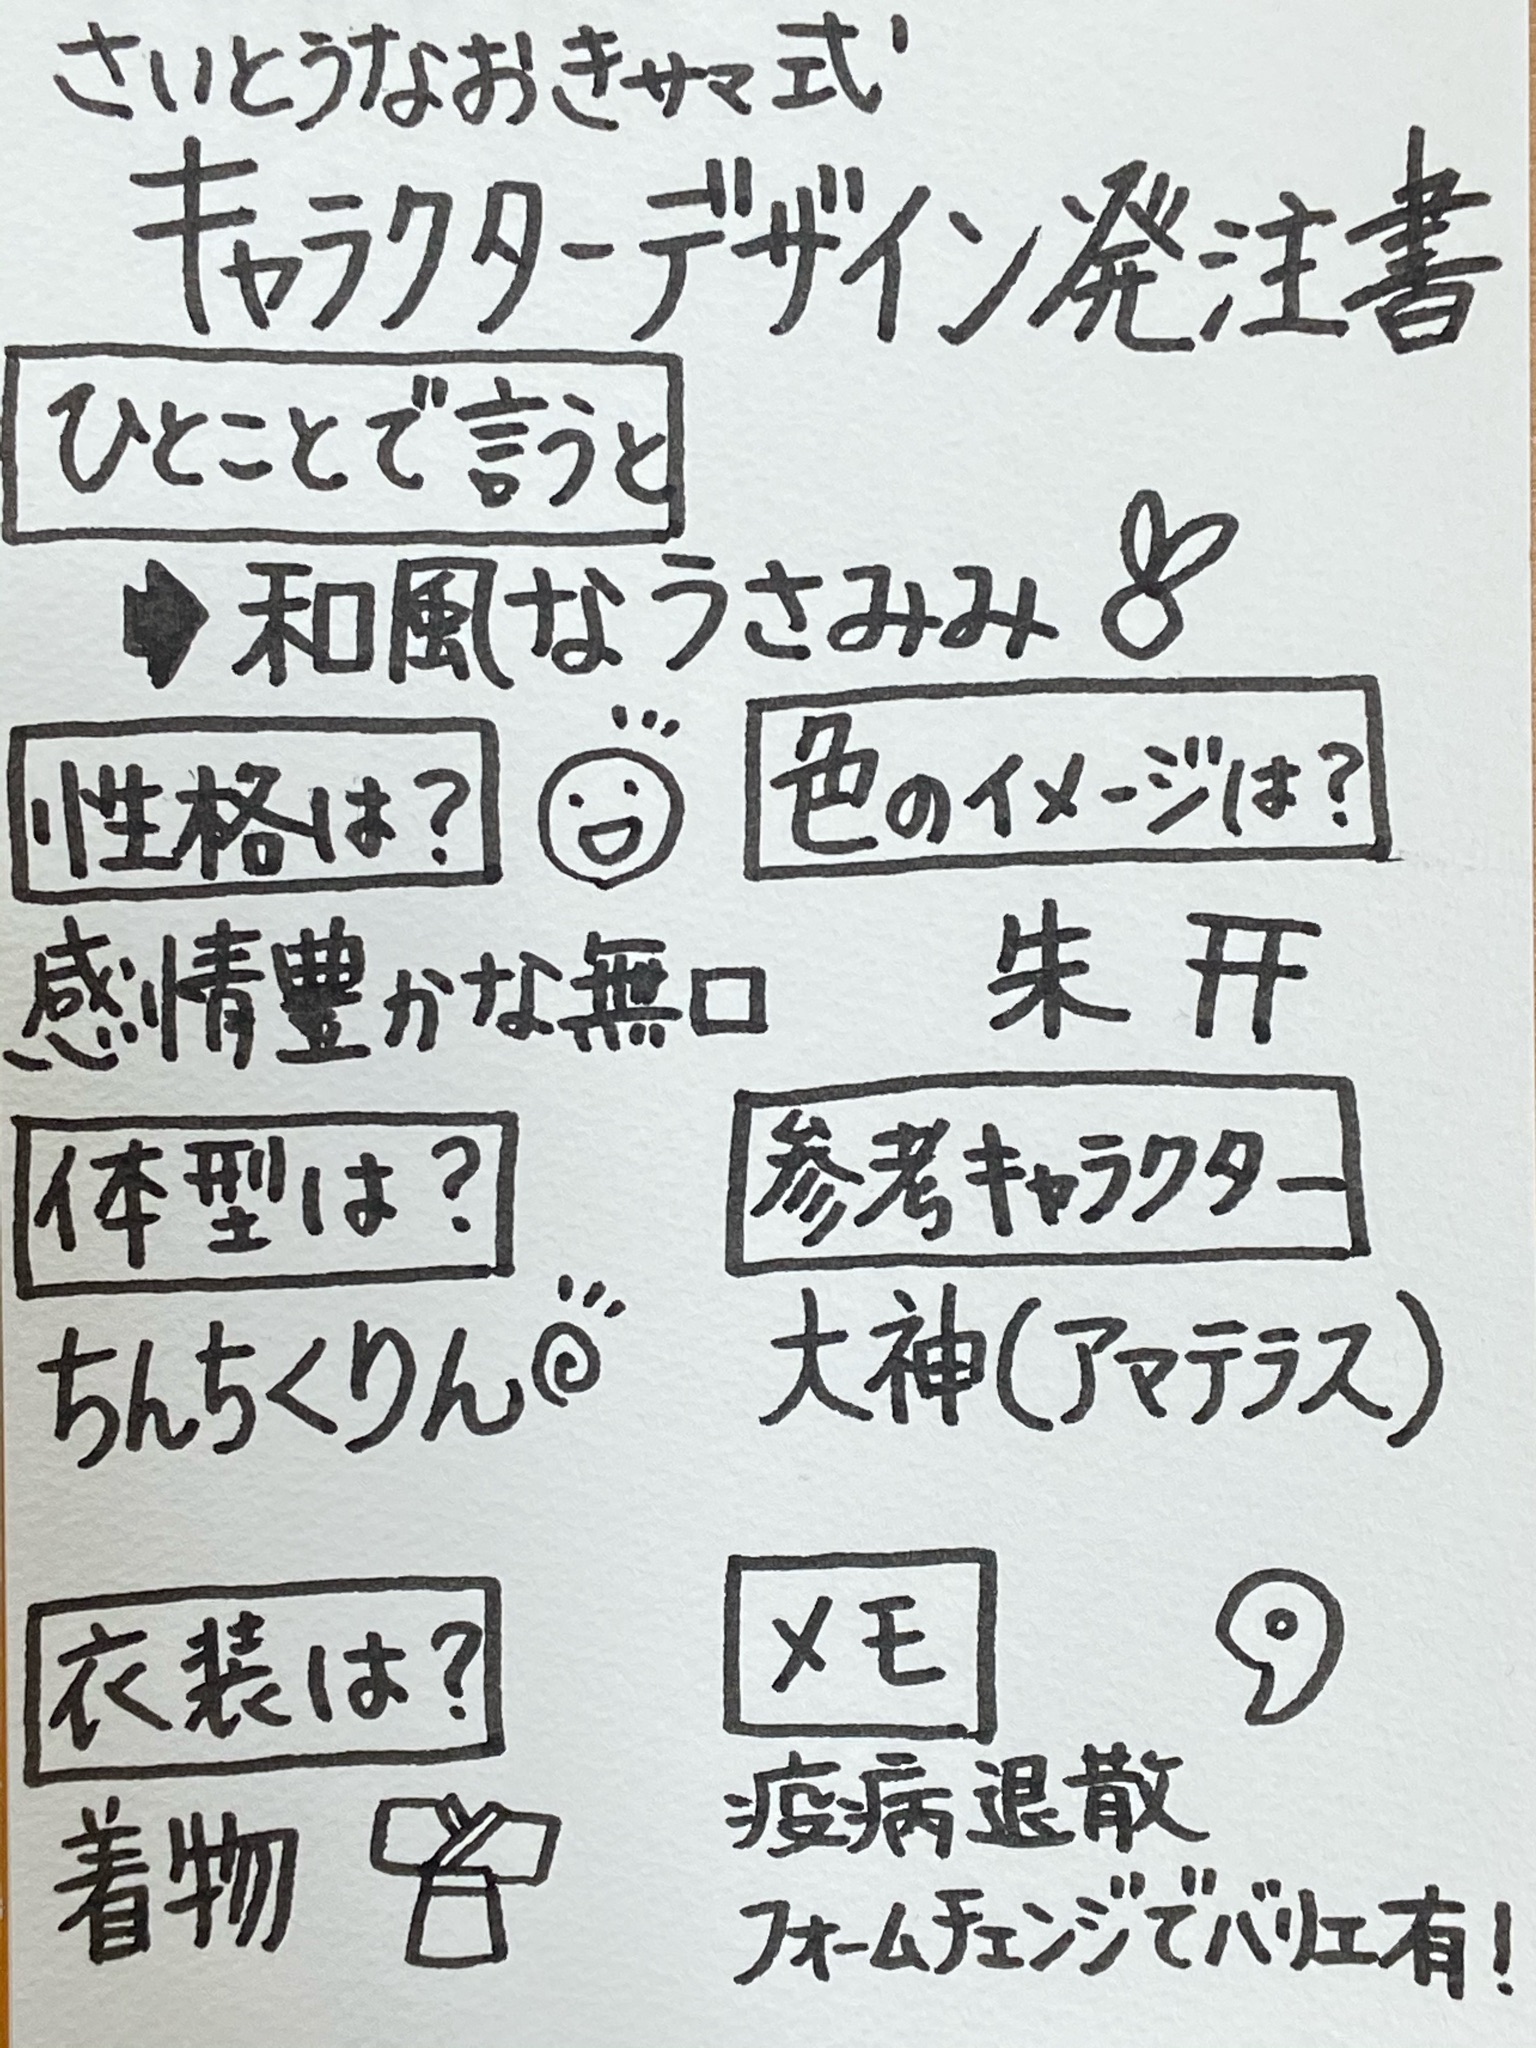 さいとうなおきサマ式
キャラクターデザイン発注書
ひとことで言うと
和風なうさみみ
性格は?
感情豊かな無口
色のイメージは?
朱
体型は?
ちんちくりん
参考キャラクター
大神(アマテラス)
衣装は?
着物
メモ
疫病退散
フォームチェンジでバリエ有!